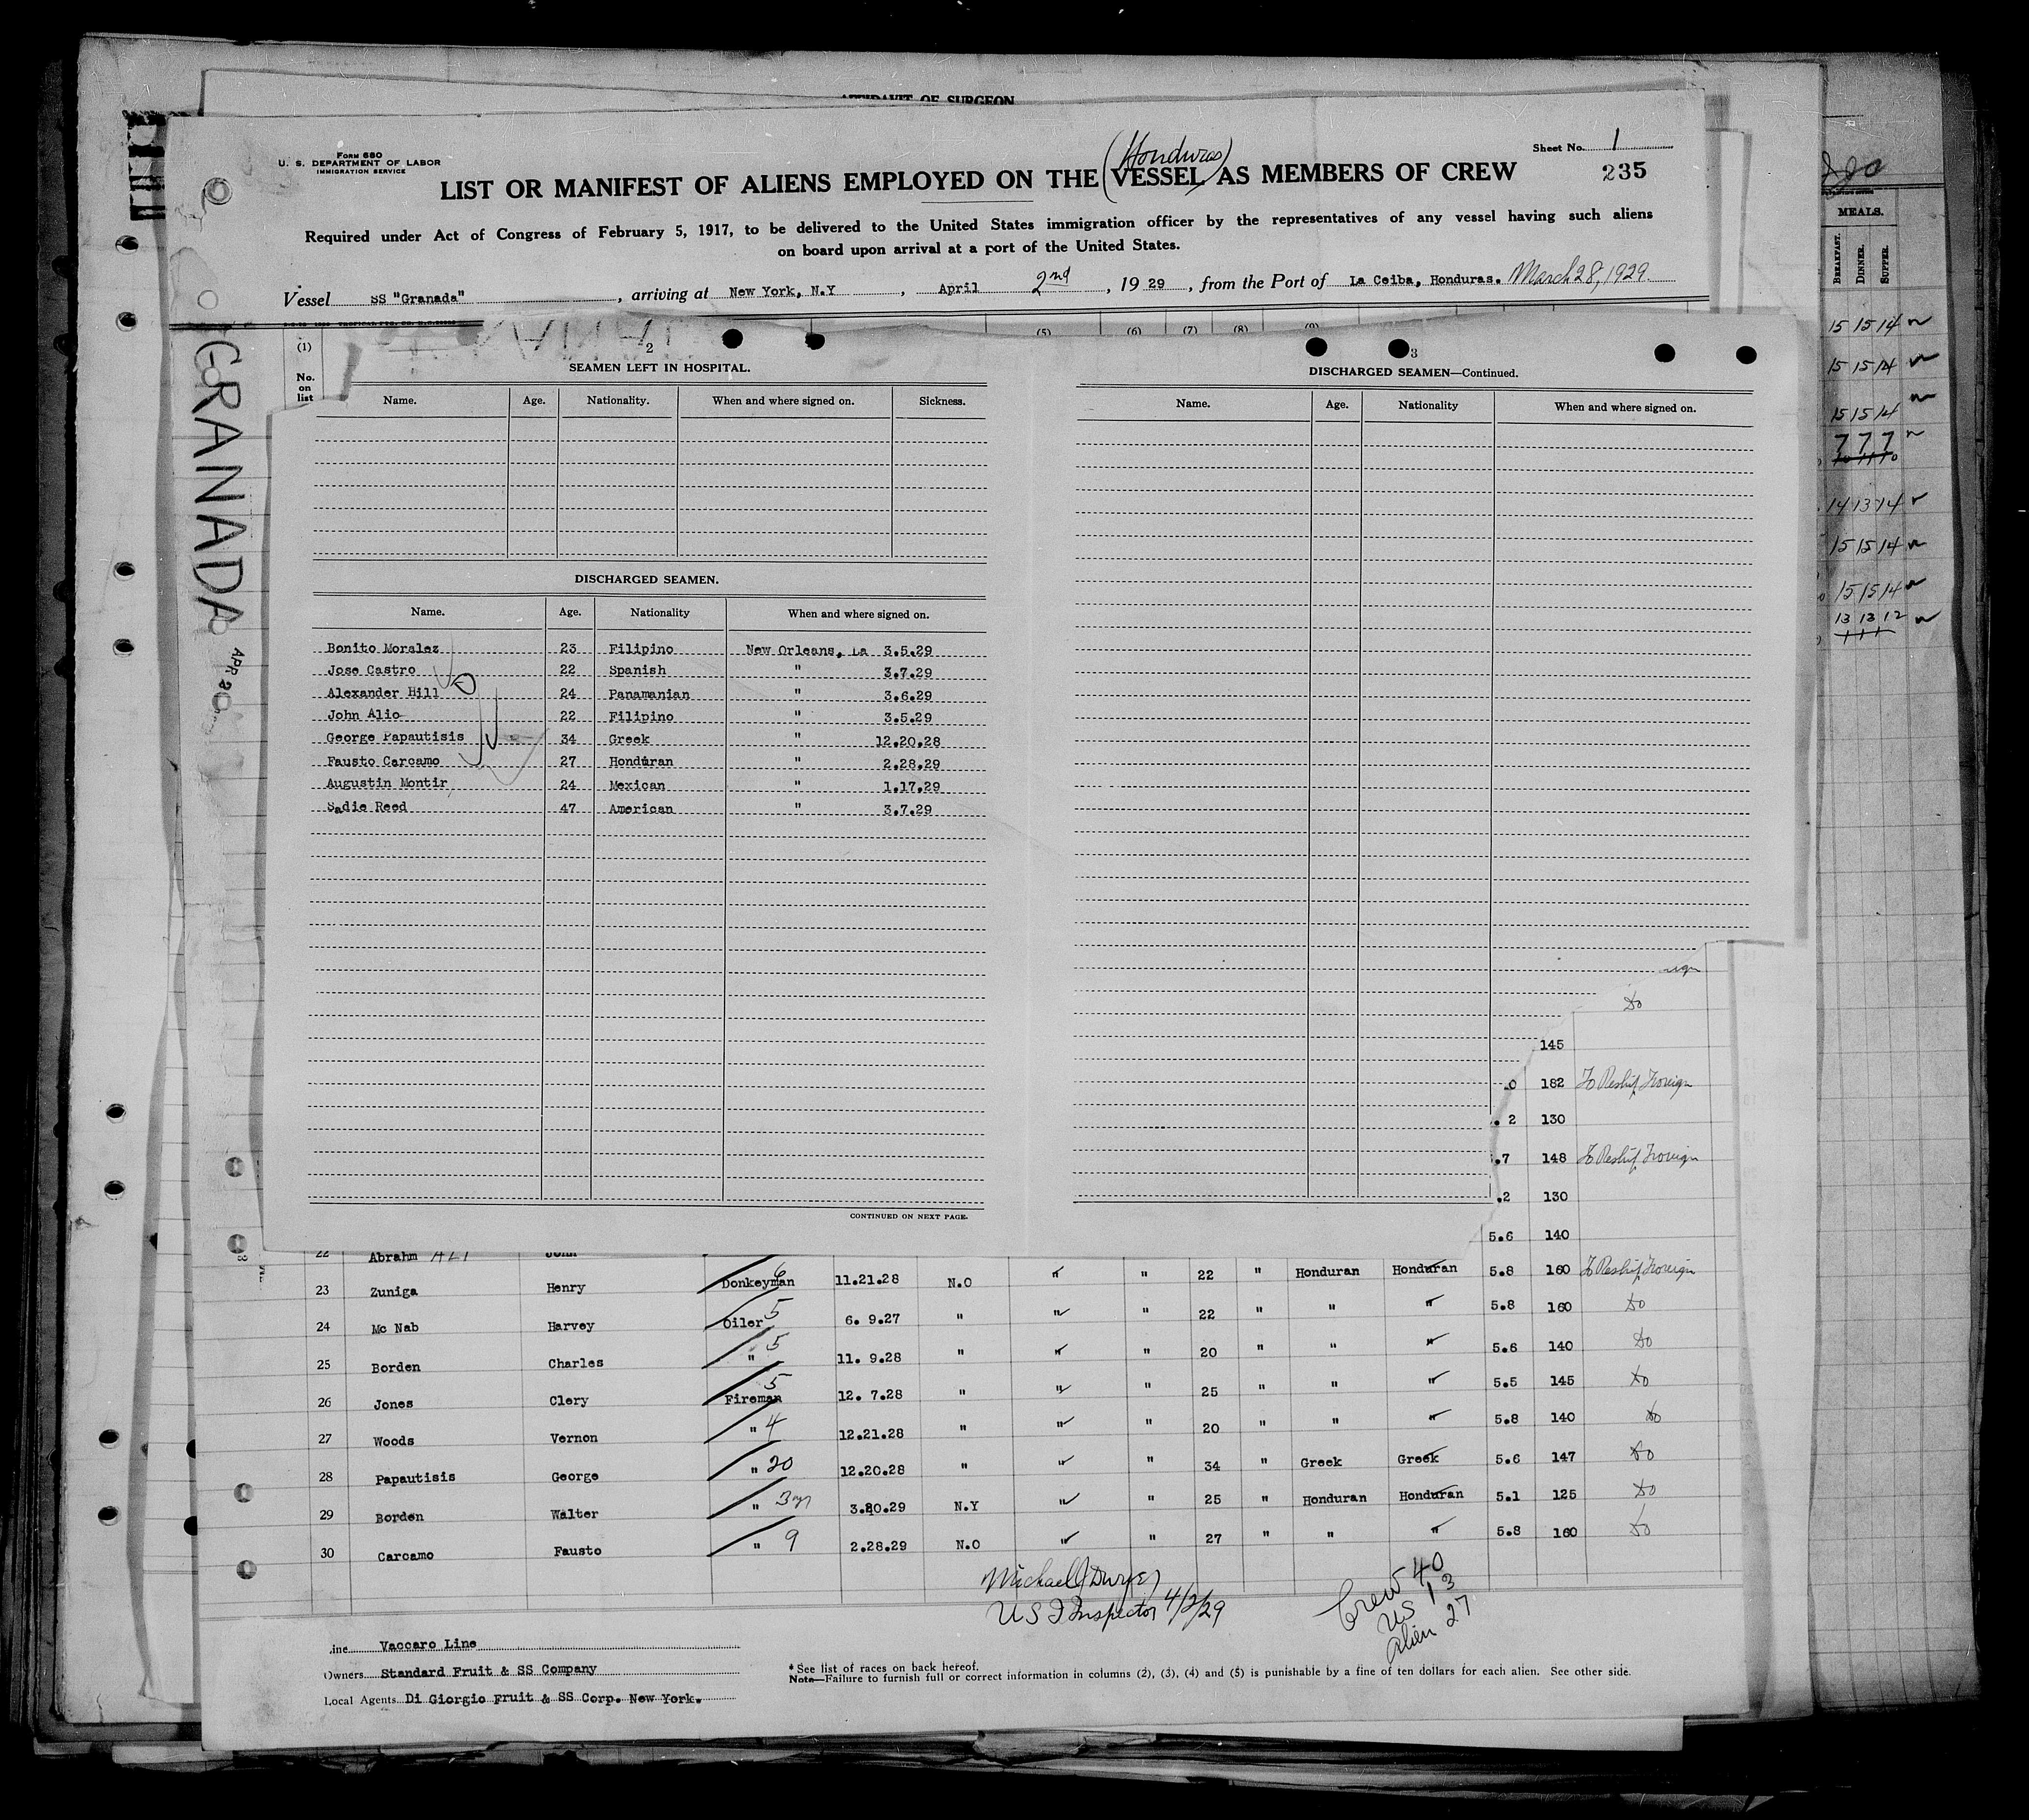 AFFIDAVIT OF SURGEON
Form 680
U. S. DEPARTMENT OF LABOR
IMMIGRATION SERVICE
Sheet No. 1
235
(Honduras)
LIST OR MANIFEST OF ALIENS EMPLOYED ON THE VESSEL AS MEMBERS OF CREW
Required under Act of Congress of February 5, 1917, to be delivered to the United States immigration officer by the representatives of any vessel having such aliens
on board upon arrival at a port of the United States.
Vessel SS "Granada", arriving at New York, N.Y, April 2nd, 1929, from the Port of La Ceiba, Honduras. March 28, 1929.
GRANADA
(1) (5) (6) (7) (8) (9)
No.
on
list
2
SEAMEN LEFT IN HOSPITAL.
Name. Age. Nationality. When and where signed on. Sickness.
DISCHARGED SEAMEN.
Name. Age. Nationality When and where signed on.
Bonito Moralez 23 Filipino New Orleans, La 3.5.29
Jose Castro 22 Spanish " 3.7.29
Alexander Hill 24 Panamanian " 3.6.29
John Alio 22 Filipino " 3.5.29
George Papautisis 34 Greek " 12.20.28
Fausto Carcamo 27 Honduran " 2.28.29
Augustin Montir 24 Mexican " 1.17.29
Sadie Reed 47 American " 3.7.29
CONTINUED ON NEXT PAGE.
3
DISCHARGED SEAMEN—Continued.
Name. Age. Nationality When and where signed on.
MEALS.
BREAKFAST. DINNER. SUPPER.
15 15 14
15 15 14
15 15 14
7 7 7
14 13 14
15 15 14
15 15 14
13 13 12
Do
145
.0 182 To Reship Foreign
.2 130
.7 148 To Reship Foreign
.2 130
5.6 140
22 Abrahm ALI John
23 Zuniga Henry Donkeyman 6 11.21.28 N.O " " 22 " Honduran Honduran 5.8 160 To Reship Foreign
24 Mc Nab Harvey Oiler 5 6. 9.27 " " " 22 " " " 5.8 160 Do
25 Borden Charles " 5 11. 9.28 " " " 20 " " " 5.6 140 Do
26 Jones Clery Fireman 5 12. 7.28 " " " 25 " " " 5.5 145 Do
27 Woods Vernon " 4 12.21.28 " " " 20 " " " 5.8 140 Do
28 Papautisis George " 20 12.20.28 " " " 34 " Greek Greek 5.6 147 Do
29 Borden Walter " 3 3.20.29 N.Y " " 25 " Honduran Honduran 5.1 125 Do
30 Carcamo Fausto " 9 2.28.29 N.O " " 27 " " " 5.8 160 Do
Michael J Dwyer
U S I Inspector 4/2/29
Crew 40
US 13
Alien 27
Line Vaccaro Line
Owners Standard Fruit & SS Company
Local Agents Di Giorgio Fruit & SS Corp. New York.
* See list of races on back hereof.
Note—Failure to furnish full or correct information in columns (2), (3), (4) and (5) is punishable by a fine of ten dollars for each alien. See other side.